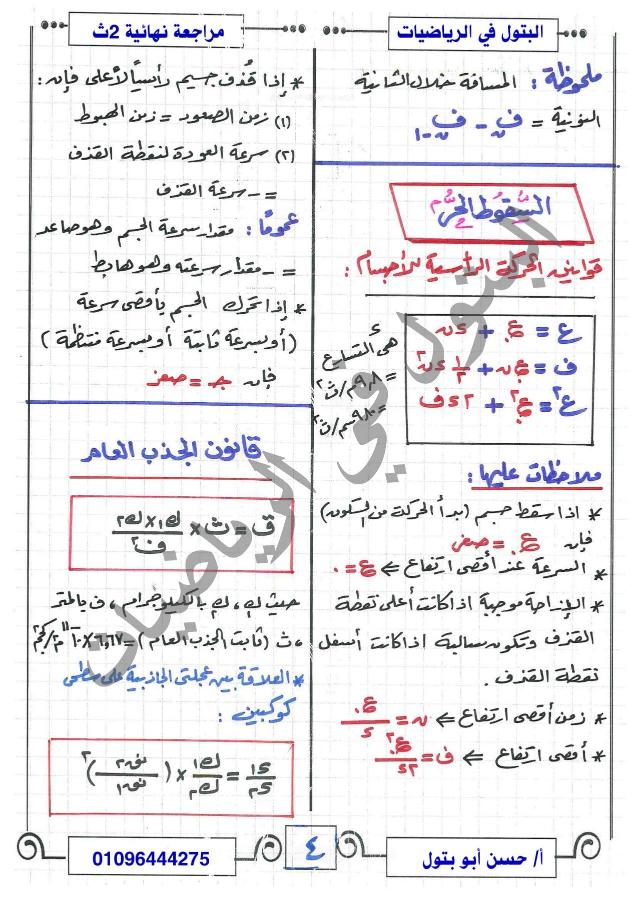 البتول في الرياضيات
مراجعة نهائية 2ث
ملحوظة : المسافة خلال الثانية
النونية = فن - فن-١
السقوط الحر
قوانين الحركة الرأسية للأجسام :
ع = ع. + ء ن
ف = ع. ن + ١/٢ ء ن٢
ع٢ = ع.٢ + ٢ ء ف
ء
هى التسارع
= ٩,٨ م/ث٢
= ٩٨٠ سم/ث٢
ملاحظات عليها :
* اذا سقط جسم (بدأ الحركة من السكون)
فإن ع. = صفر
* السرعة عند أقصى ارتفاع ⇐ ع = ٠
* الإزاحة موجبة اذا كانت أعلى نقطة
القذف وتكون سالبة اذا كانت أسفل
نقطة القذف .
* زمن أقصى ارتفاع ⇐ ن = ع./ء
* أقصى ارتفاع ⇐ ف = ع.٢/٢ء
* إذا قذف جسم رأسياً لأعلى فإن :
(١) زمن الصعود = زمن الهبوط
(٢) سرعة العودة لنقطة القذف
= - سرعة القذف
عموماً : مقدار سرعة الجسم وهو صاعد
= - مقدار سرعته وهو هابط
* إذا تحرك الجسم بأقصى سرعة
(أو بسرعة ثابتة أو بسرعة منتظمة)
فإن جـ = صفر
قانون الجذب العام
ق = ث × ك١ × ك٢/ف٢
حيث ك١ ، ك٢ بالكيلوجرام ، ف بالمتر
، ث (ثابت الجذب العام) = ٦,٦٧ × ١٠-١١ م٣/كجم
* العلاقة بين عجلتى الجاذبية على سطحى
كوكبين :
ء١/ء٢ = ك١/ك٢ × (نق٢/نق١)٢
البتول في الرياضيات
أ/ حسن أبو بتول
٤
01096444275